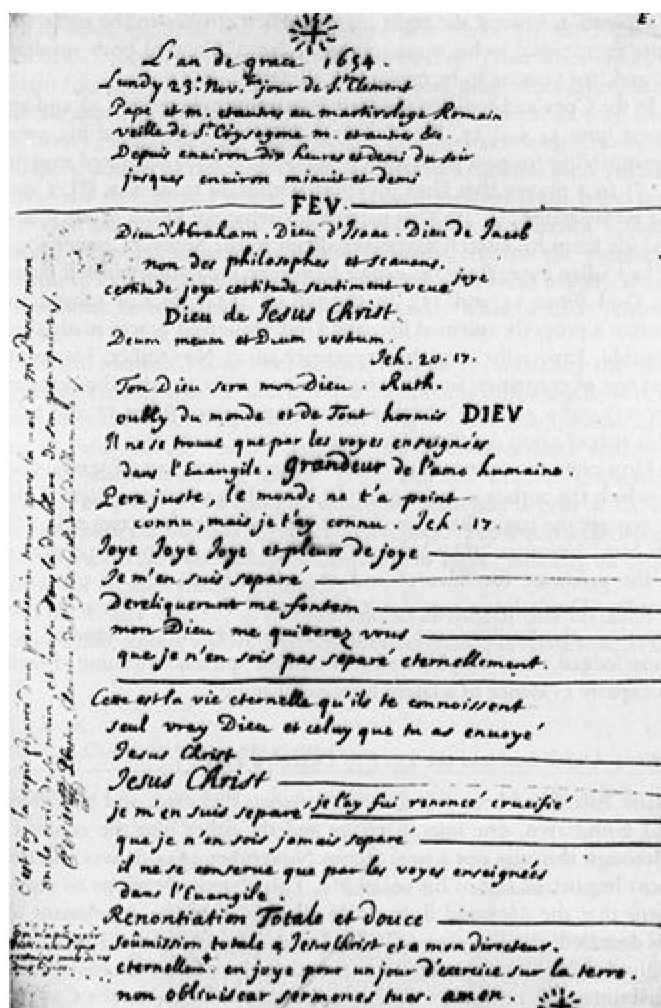 L'an de grace 1654.
Lundy 23e Nov.bre jour de St Clement
Pape et m. et autres au martirologe Romain
veille de St Crysogone m. et autres &c
Depuis environ dix heures et demi du soir
jusques environ minuit et demi
FEV.
Dieu d'Abraham. Dieu d'Isaac. Dieu de Jacob
non des philosophes et scavans.
certitude joye certitude sentiment veue joye
Dieu de Jesus Christ.
Deum meum et Deum vestrum.
Jeh. 20. 17.
Ton Dieu sera mon Dieu. Ruth.
oubly du monde et de Tout hormis DIEV
Il ne se trouve que par les voyes enseignées
dans l'Evangile. Grandeur de l'ame humaine.
Pere juste, le monde ne t'a point
connu, mais je t'ay connu. Jeh. 17.
Joye Joye Joye et pleurs de joye
Je m'en suis separé
Dereliquerunt me fontem
mon Dieu me quitterez vous
que je n'en sois pas separé eternellement.
Cette est la vie eternelle qu'ils te connoissent
seul vray Dieu et celuy que tu as envoyé
Jesus Christ
Jesus Christ
je m'en suis separé je l'ay fui renoncé crucifié
que je n'en sois jamais separé
il ne se conserve que par les voyes enseignées
dans l'Evangile.
Renontiation Totale et douce
soûmission totale a Jesus Christ et a mon directeur.
eternellemt en joye pour un jour d'exercice sur la terre.
non obliviscar sermones tuos. amen.